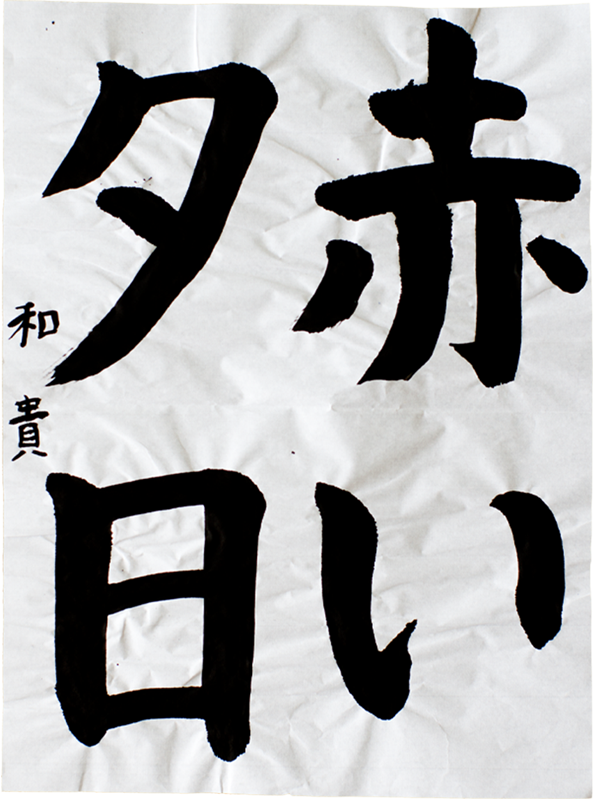 赤い
夕日
和貴